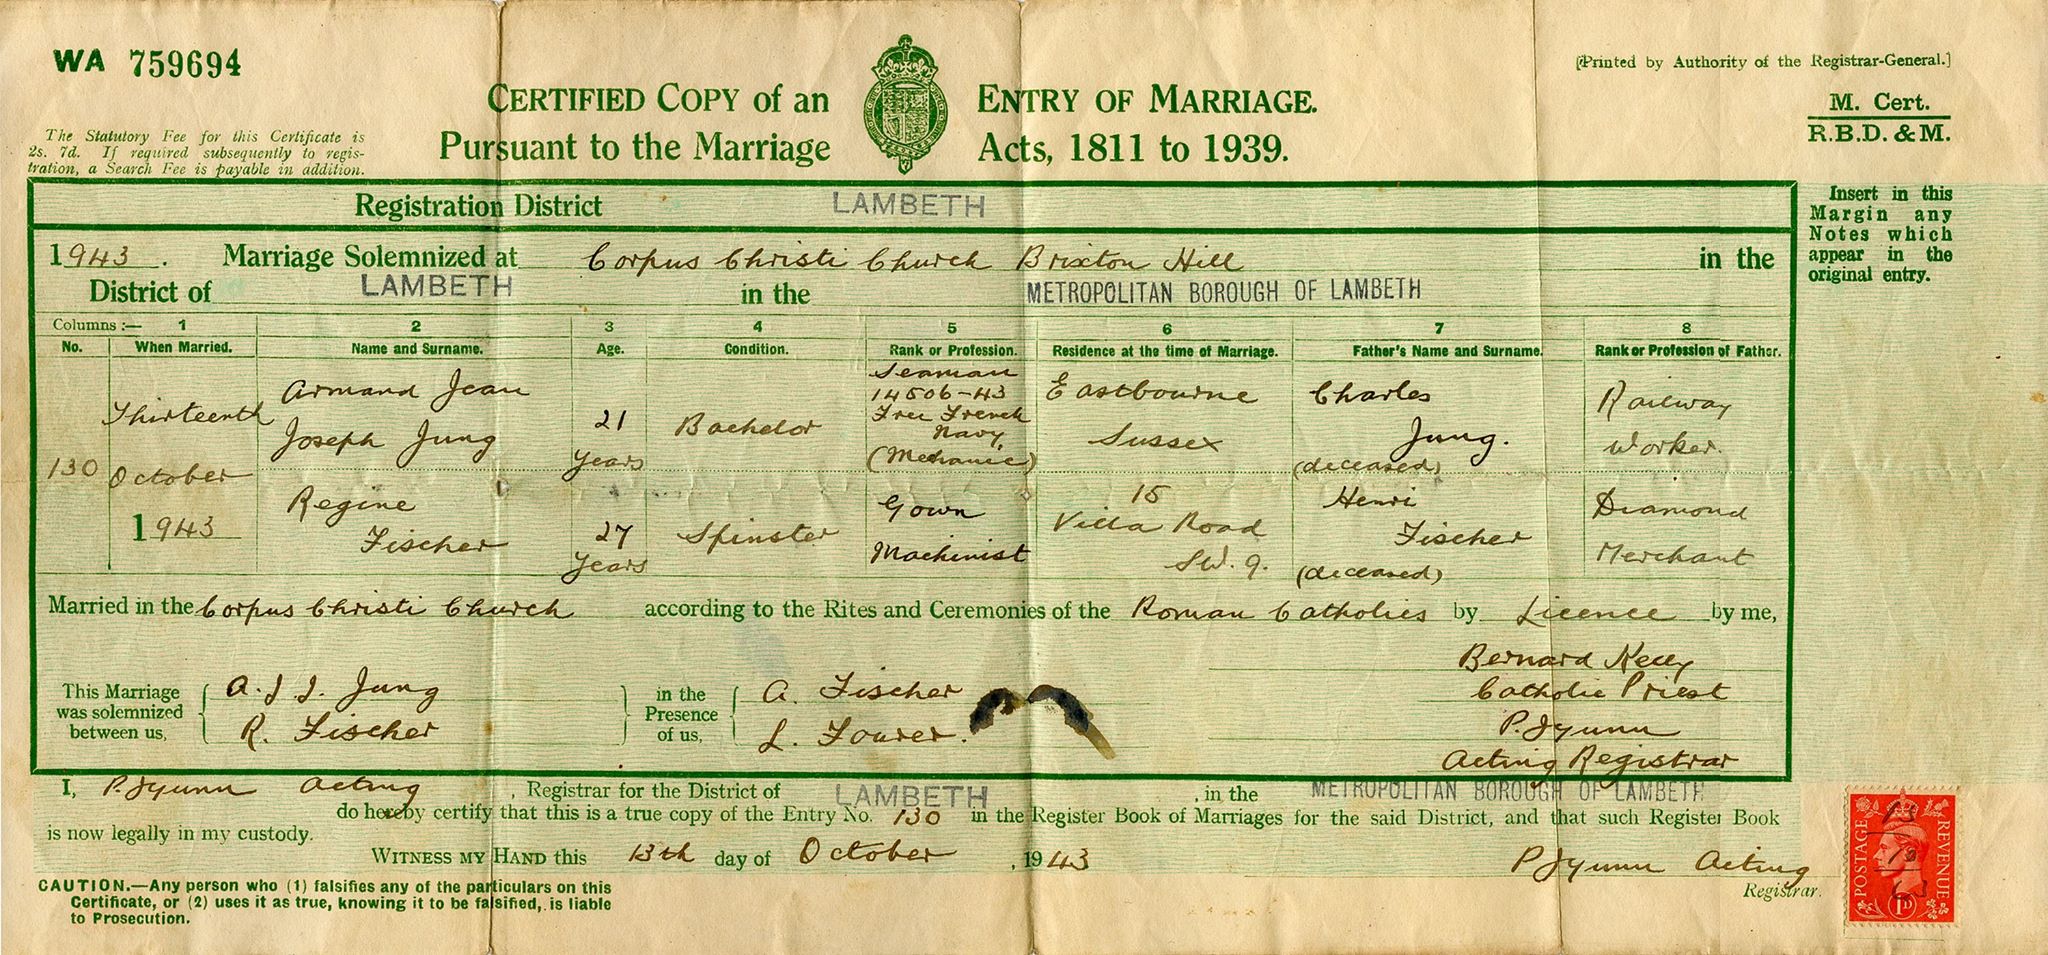 WA 759694
[Printed by Authority of the Registrar-General.]
CERTIFIED COPY of an ENTRY OF MARRIAGE.
Pursuant to the Marriage Acts, 1811 to 1939.
M. Cert.
R.B.D. & M.
The Statutory Fee for this Certificate is
2s. 7d. If required subsequently to regis-
tration, a Search Fee is payable in addition.
Registration District LAMBETH
Insert in this
Margin any
Notes which
appear in the
original entry.
1943. Marriage Solemnized at Corpus Christi Church Brixton Hill in the
District of LAMBETH in the METROPOLITAN BOROUGH OF LAMBETH
Columns :— 1 2 3 4 5 6 7 8
No. When Married. Name and Surname. Age. Condition. Rank or Profession. Residence at the time of Marriage. Father's Name and Surname. Rank or Profession of Father.
130
Thirteenth
October
1943
Armand Jean
Joseph Jung
21
years
Bachelor
Seaman
14506-43
Free French
Navy,
(Mechanic)
Eastbourne
Sussex
Charles
Jung.
(deceased)
Railway
Worker.
Regine
Fischer
27
years
Spinster
Gown
Machinist
15
Villa Road
S.W. 9.
Henri
Fischer
(deceased)
Diamond
Merchant
Married in the Corpus Christi Church according to the Rites and Ceremonies of the Roman Catholics by Licence by me,
Bernard Kelly
Catholic Priest
This Marriage
was solemnized
between us,
A. J. J. Jung
R. Fischer
in the
Presence
of us,
A. Fischer
L. Fourer.
Acting Registrar
I, Acting, Registrar for the District of LAMBETH, in the METROPOLITAN BOROUGH OF LAMBETH
do hereby certify that this is a true copy of the Entry No. 130 in the Register Book of Marriages for the said District, and that such Register Book
is now legally in my custody.
WITNESS MY HAND this 13th day of October, 1943
Acting
Registrar.
CAUTION.—Any person who (1) falsifies any of the particulars on this
Certificate, or (2) uses it as true, knowing it to be falsified, is liable
to Prosecution.
POSTAGE
REVENUE
1D
13
10